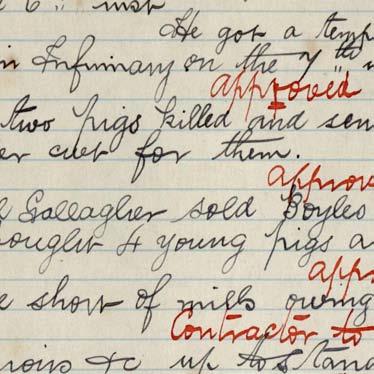 6" inst
He got a temp
Infirmary on the 7th
approved
two pigs killed and sen
er cwt for them.
approv
Gallagher sold Boyles
bought 4 young pigs a
app
e short of milk owing
Contractor to
&c up to stand